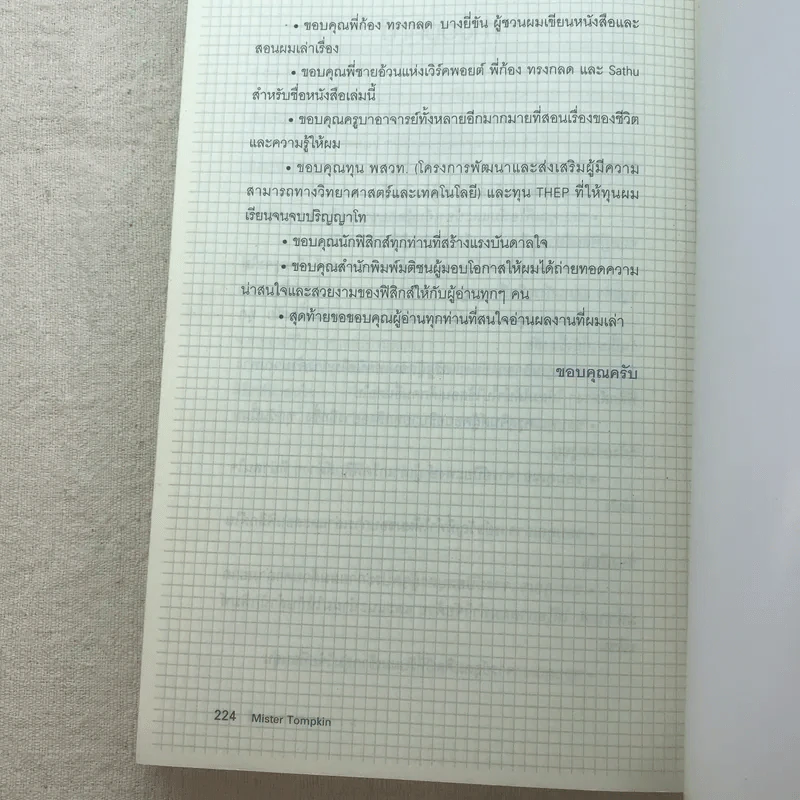 • ขอบคุณพี่ก้อง ทรงกลด บางยี่ขัน ผู้ชวนผมเขียนหนังสือและ
สอนผมเล่าเรื่อง
• ขอบคุณพี่ชายอ้วนแห่งเวิร์คพอยต์ พี่ก้อง ทรงกลด และ Sathu
สำหรับชื่อหนังสือเล่มนี้
• ขอบคุณครูบาอาจารย์ทั้งหลายอีกมากมายที่สอนเรื่องของชีวิต
และความรู้ให้ผม
• ขอบคุณทุน พสวท. (โครงการพัฒนาและส่งเสริมผู้มีความ
สามารถทางวิทยาศาสตร์และเทคโนโลยี) และทุน THEP ที่ให้ทุนผม
เรียนจนจบปริญญาโท
• ขอบคุณนักฟิสิกส์ทุกท่านที่สร้างแรงบันดาลใจ
• ขอบคุณสำนักพิมพ์มติชนผู้มอบโอกาสให้ผมได้ถ่ายทอดความ
น่าสนใจและสวยงามของฟิสิกส์ให้กับผู้อ่านทุกๆ คน
• สุดท้ายขอขอบคุณผู้อ่านทุกท่านที่สนใจอ่านผลงานที่ผมเล่า
ขอบคุณครับ
224 Mister Tompkin